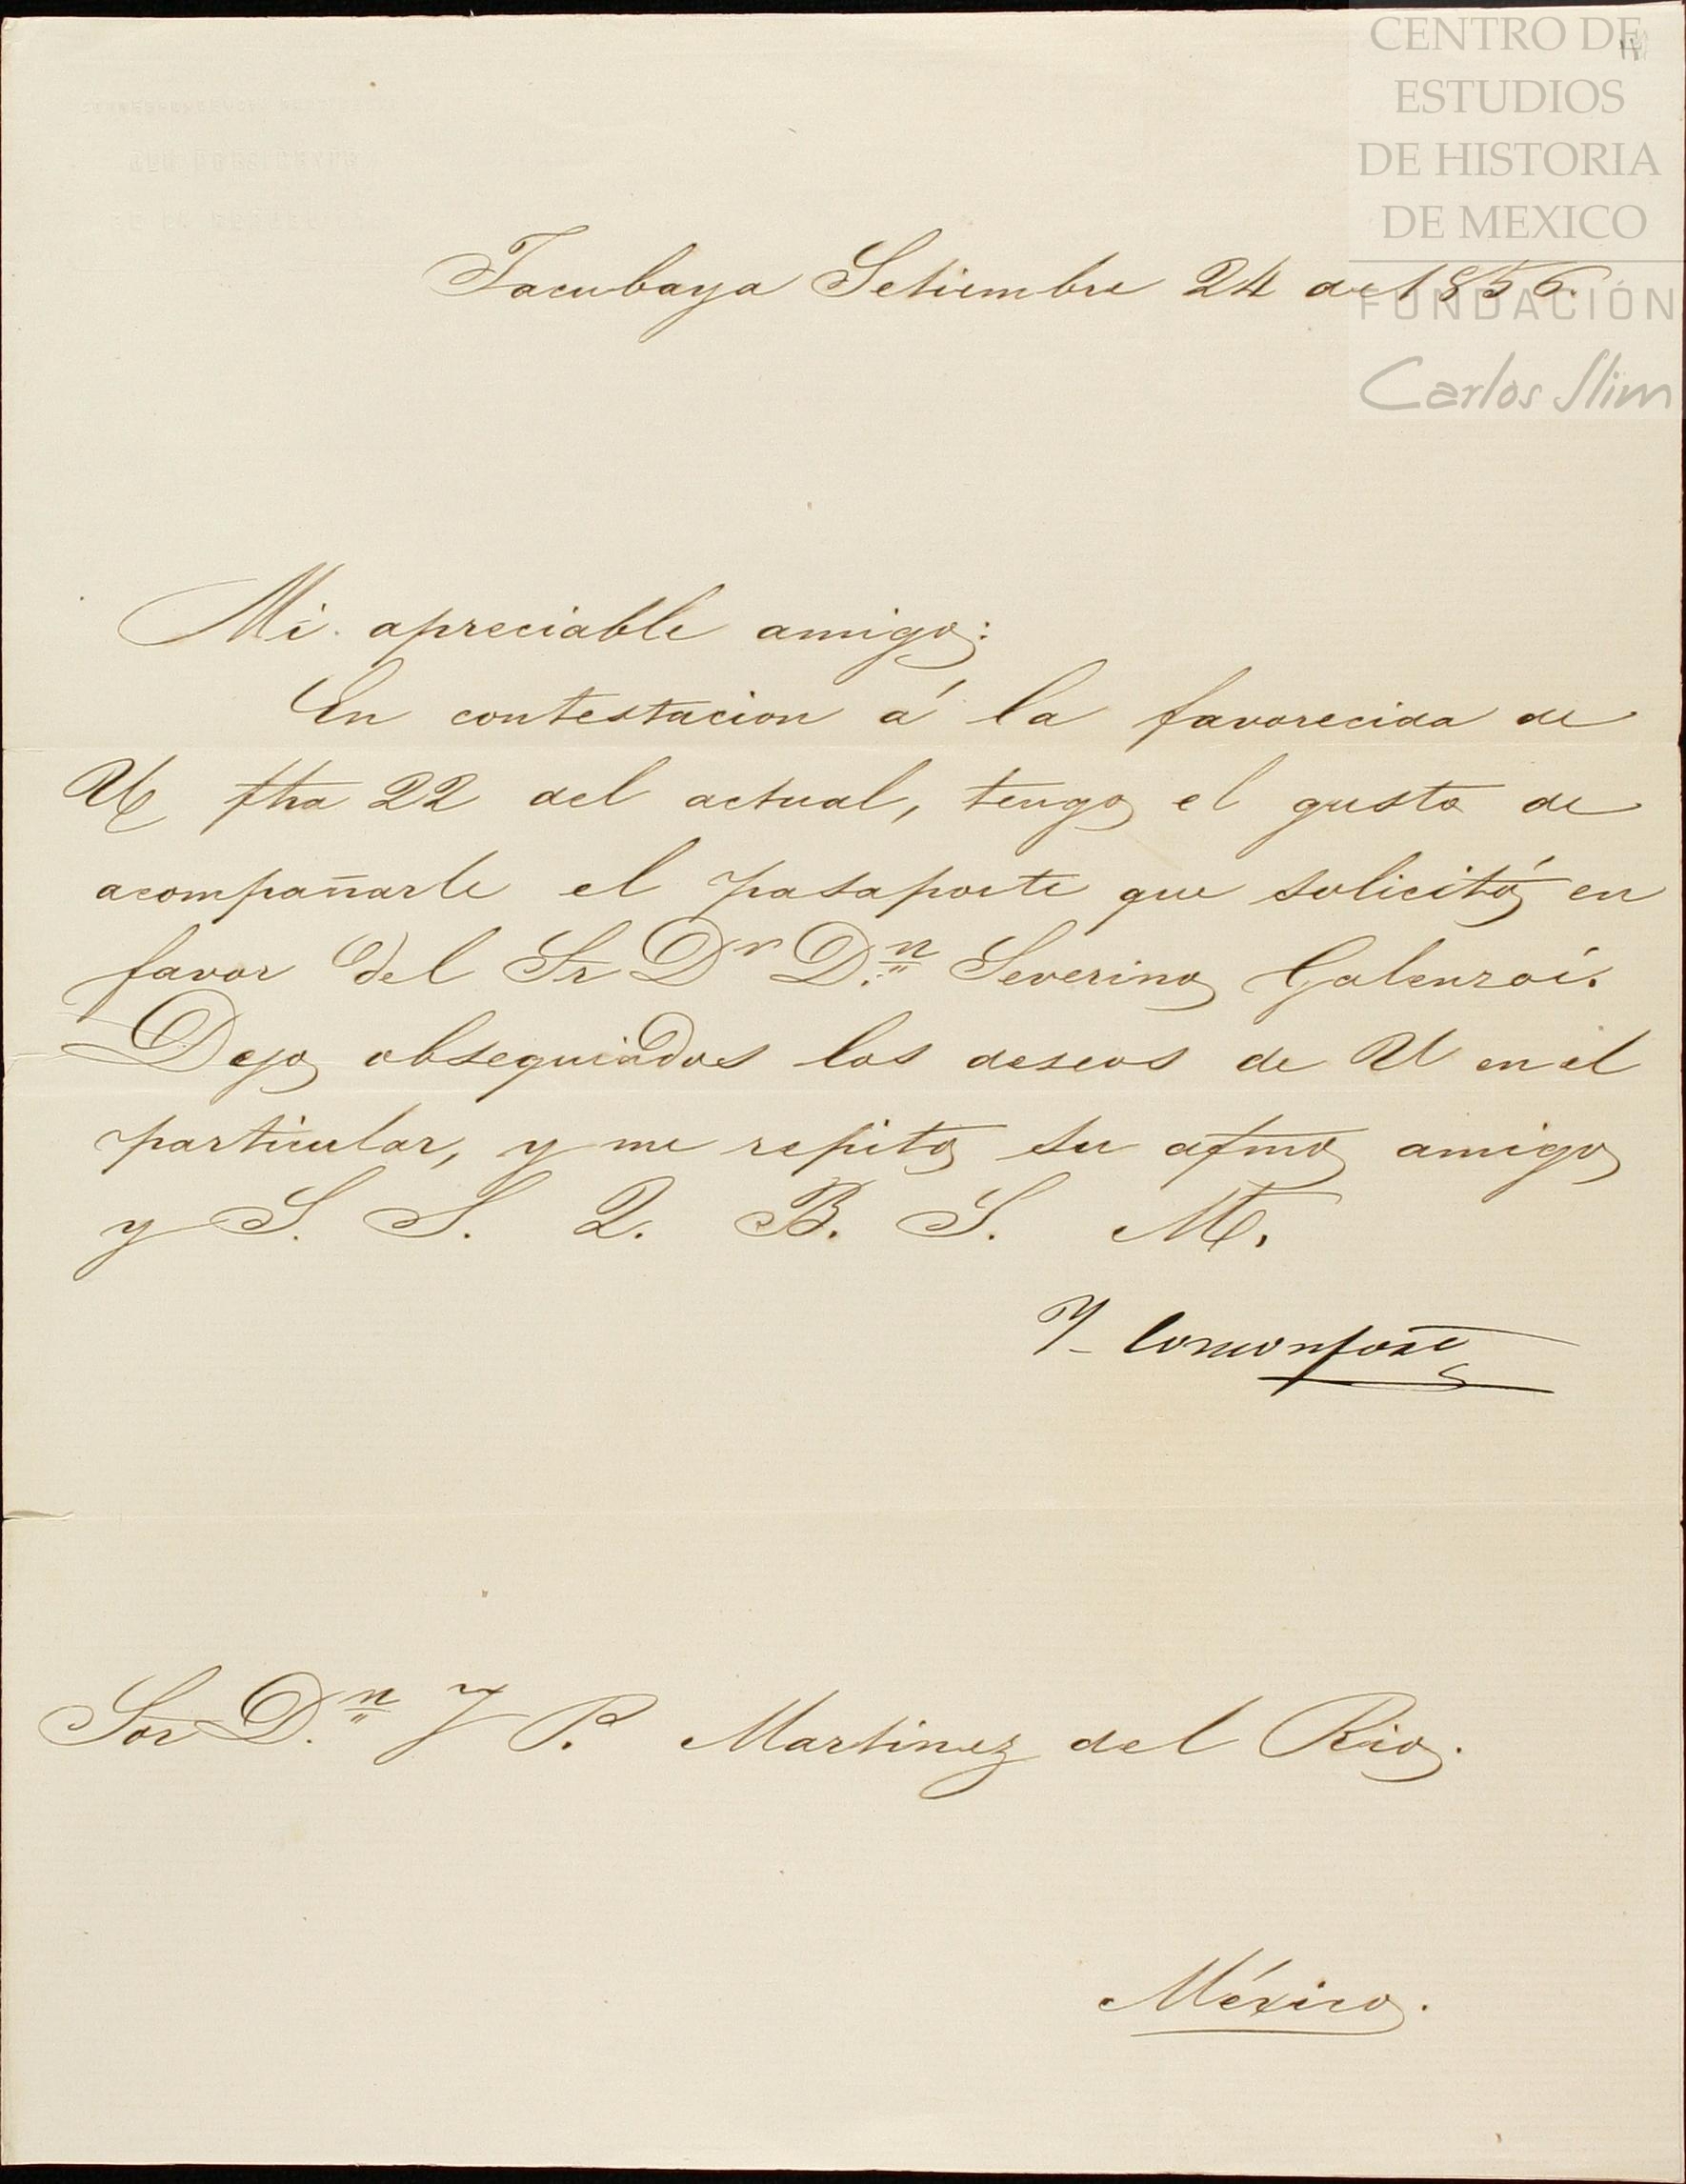 CENTRO DE
ESTUDIOS
DE HISTORIA
DE MEXICO
FUNDACIÓN
Carlos Slim
Tacubaya Setiembre 24 de 1856.
Mi apreciable amigo:
En contestacion á la favorecida de
U fha 22 del actual, tengo el gusto de
acompañarle el pasaporte que solicitó en
favor del Sr Dr D.n Severino Galenzoi.
Dejo obsequiados los deseos de U en el
particular, y me repito su afmo amigo
y S. S. Q. B. S. M.
Y Comonfort
Sor D.n J P. Martinez del Rio.
México.